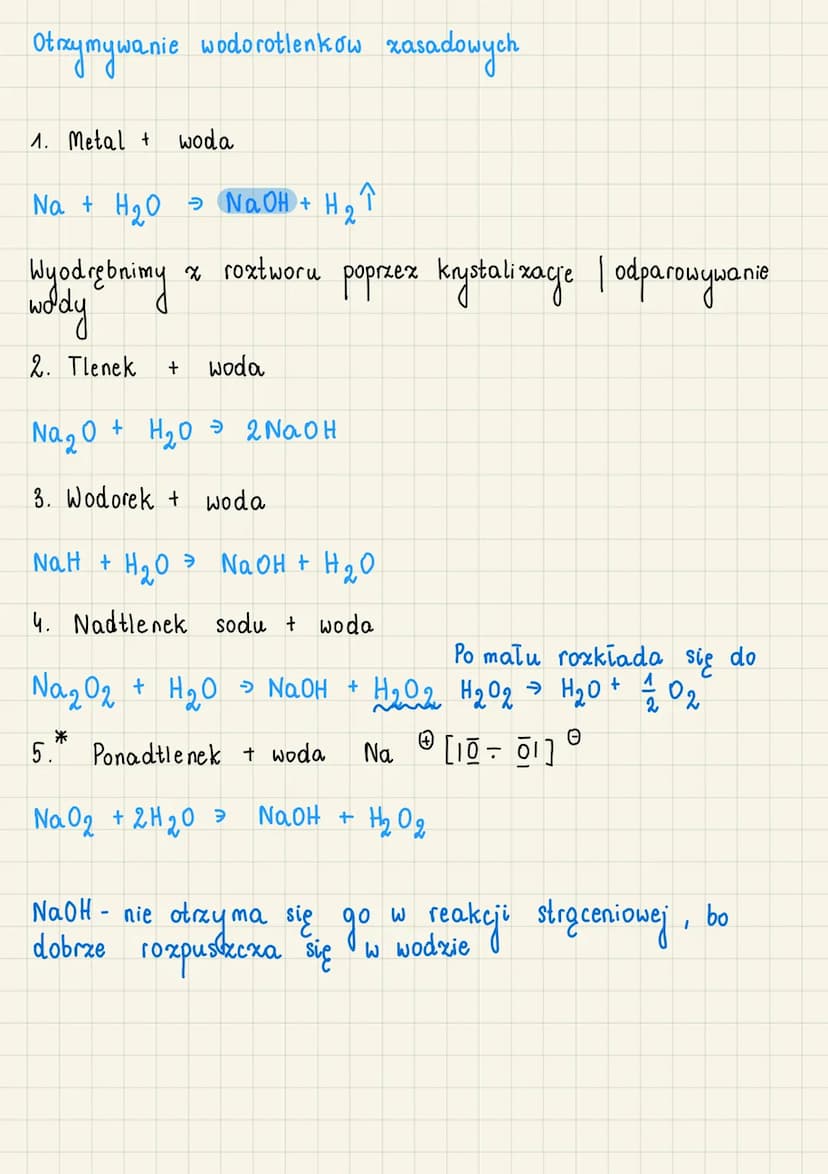 Otrzymywanie wodorotlenków zasadowych
1. Metal + woda
Na + H₂O → NaOH + H₂↑
Wyodrębnimy z roztworu poprzez krystalizację | odparowywanie
wody
2. Tlenek + woda
Na₂O + H₂O → 2NaOH
3. Wodorek + woda
NaH + H₂O → NaOH + H₂O
4. Nadtlenek sodu + woda
Po mału rozkłada się do
Na₂O₂ + H₂O → NaOH + H₂O₂ H₂O₂ → H₂O + 1/2 O₂
5.* Ponadtlenek + woda Na ⊕ [|O̅ ÷ O̲̅|] ⊖
NaO₂ + 2H₂O → NaOH + H₂O₂
NaOH - nie otrzyma się go w reakcji strąceniowej, bo
dobrze rozpuszcza się w wodzie